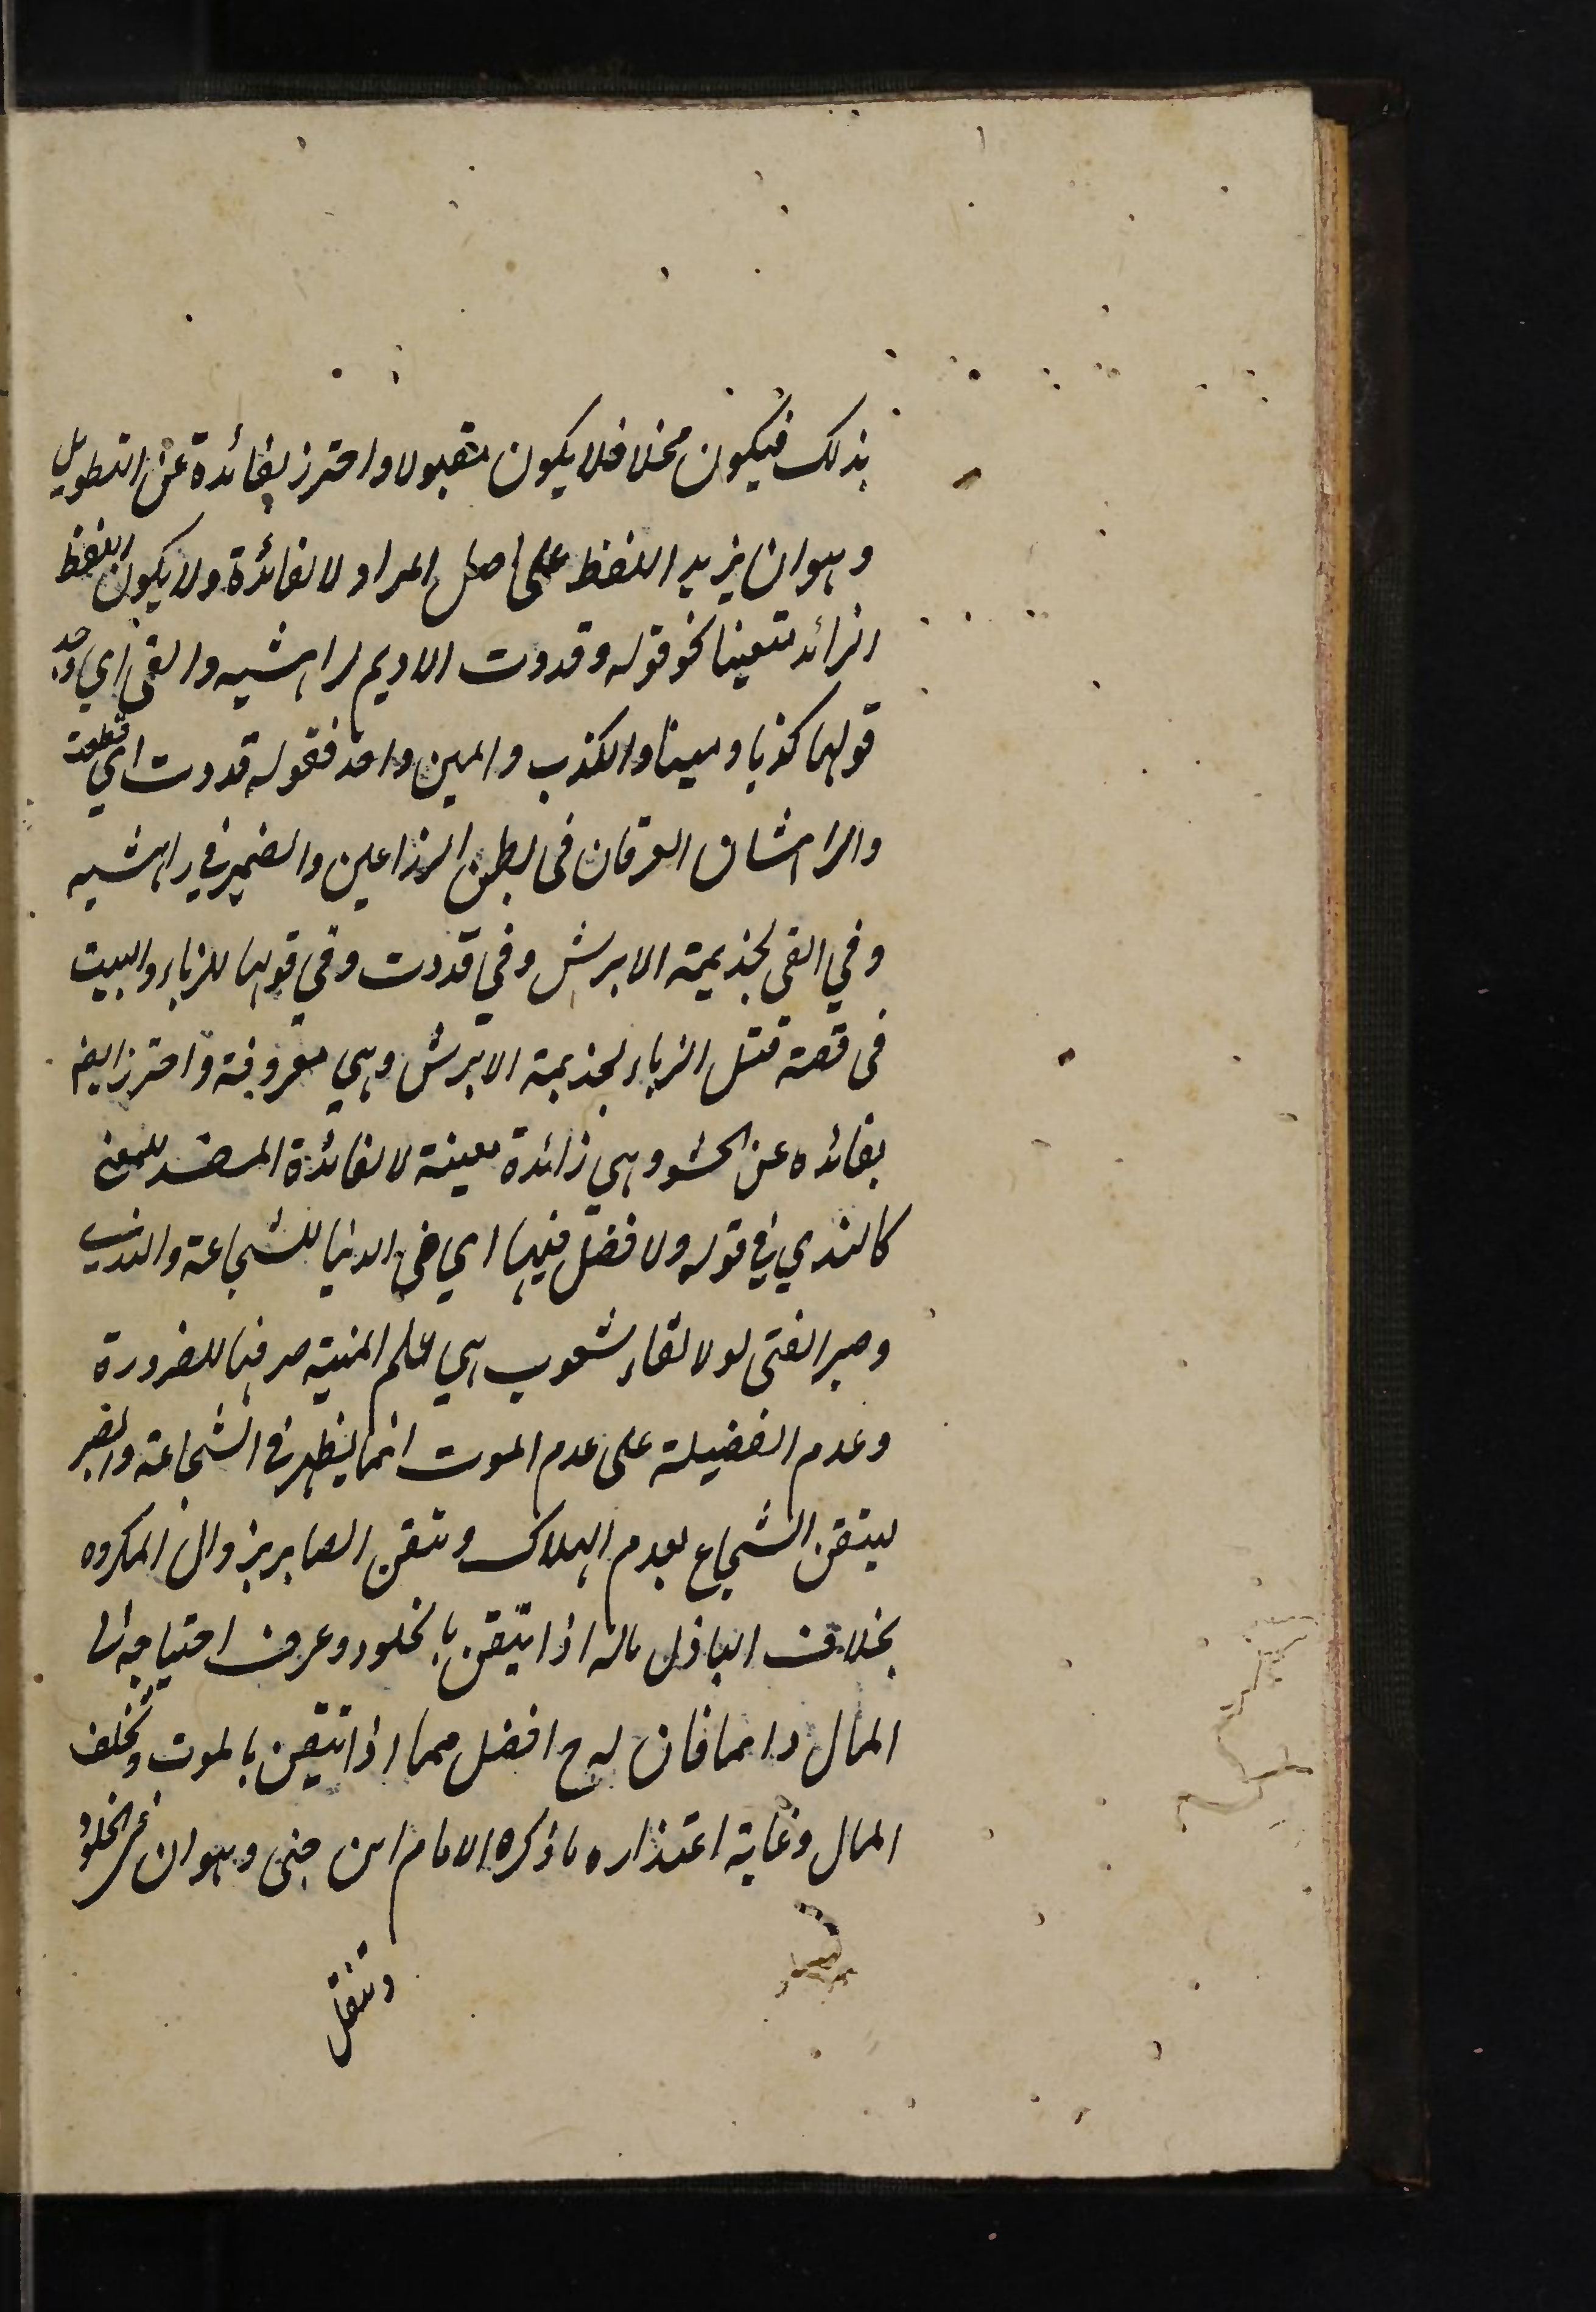 بذلك فيكون مخلا فلا يكون مقبولا واحترز بفائدة عن التطويل
وهو ان يزيد اللفظ على اصل المراد لا لفائدة ولا يكون اللفظ
الزائد متعينا نحو قوله وقددت الاديم لراهشيه والفى اي وجد
قولها كذبا ومينا والكذب والمين واحد فقوله قددت اي قطعت
والراهشان العرقان فى بطن الذراعين والضمير في راهشيه
وفي الفى لجذيمة الابرش وفي قددت وفي قولها للزباء والبيت
فى قصة قتل الزباء لجذيمة الابرش وهي معروفة واحترز ايضا
بفائده عن الحشو وهي زائدة معينة لا لفائدة المفسد للمعنى
كالندي في قوله ولا فضل فيها اي في الدنيا للشجاعة والندى
وصبر الفتى لولا لقاء شعوب هي علم المنية صرفها للضرورة
وعدم الفضيلة على عدم الموت انما يظهر في الشجاعة والصبر
ليتقن الشجاع بعدم الهلاك وتيقن الصابر بزوال المكروه
بخلاف الباذل ماله اذا تيقن بالخلود وعرف احتياجه الى
المال دائما فان له ح افضل مما اذا تيقن بالموت وتخلف
المال وغاية اعتذاره ما ذكره الامام ابن جنى وهو ان في الخلود
وتنقل